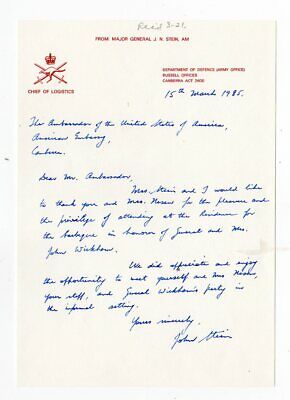 Rec'd 3-21.
FROM MAJOR GENERAL J. N. STEIN, AM
DEPARTMENT OF DEFENCE (ARMY OFFICE)
RUSSELL OFFICES
CANBERRA ACT 2600
CHIEF OF LOGISTICS
15th March 1985.
The Ambassador of the United States of America,
American Embassy,
Canberra.
Dear Mr. Ambassador,
Mrs. Stein and I would like
to thank you and Mrs. for the pleasure and
the privilege of attending at the Residence for
the barbeque in honour of General and Mrs.
John Wickham.
We did appreciate and enjoy
the opportunity to meet yourself and Mrs
your staff, and General Wickham's party in
the informal setting.
Yours sincerely,
John Stein